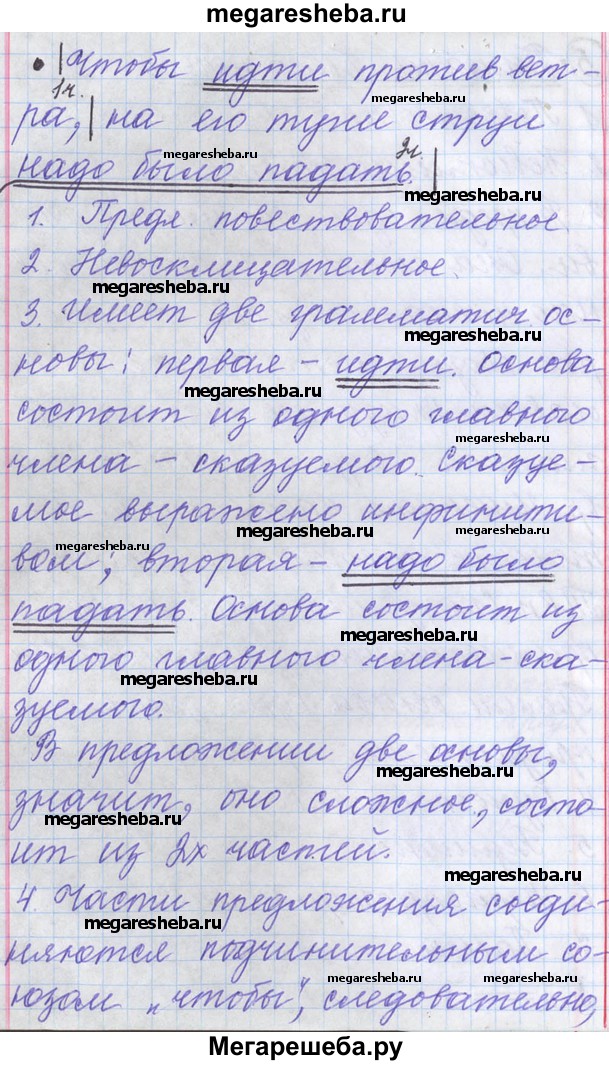 megaresheba.ru
• |Чтобы идти против вет-
megaresheba.ru
1ч.
ра,| на его тугие струи
megaresheba.ru
2ч.
надо было падать.|
1. Предл. повествовательное
2. Невосклицательное.
megaresheba.ru
3. Имеет две грамматич ос-
megaresheba.ru
новы: первая – идти. Основа
megaresheba.ru
состоит из одного главного
megaresheba.ru
члена – сказуемого. Сказуе-
мое выражено инфинити-
megaresheba.ru
megaresheba.ru
вом; вторая – надо было
падать. Основа состоит из
megaresheba.ru
одного главного члена – ска-
megaresheba.ru
зуемого.
В предложении две основы,
megaresheba.ru
значит, оно сложное, состо-
megaresheba.ru
ит из 2х частей.
megaresheba.ru
4. Части предложения соеди-
megaresheba.ru
няются подчинительным со-
megaresheba.ru
megaresheba.ru
юзом „чтобы", следовательно,
Мегарешеба.ру